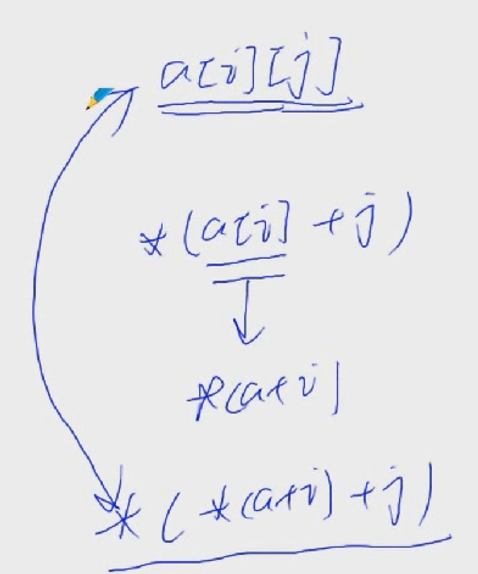 a[i][j]
*(a[i]+j)
*(a+i)
*(*(a+i)+j)